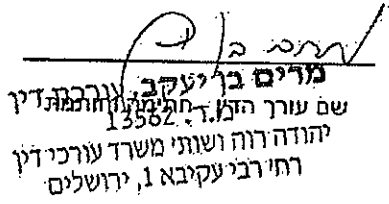 מרים בן יעקב, עורכת דין
שם עורך הדין
מ.ר. 13562
יהודה רוה ושותי משרד עורכי דין
רחי רבי עקיבא 1, ירושלים